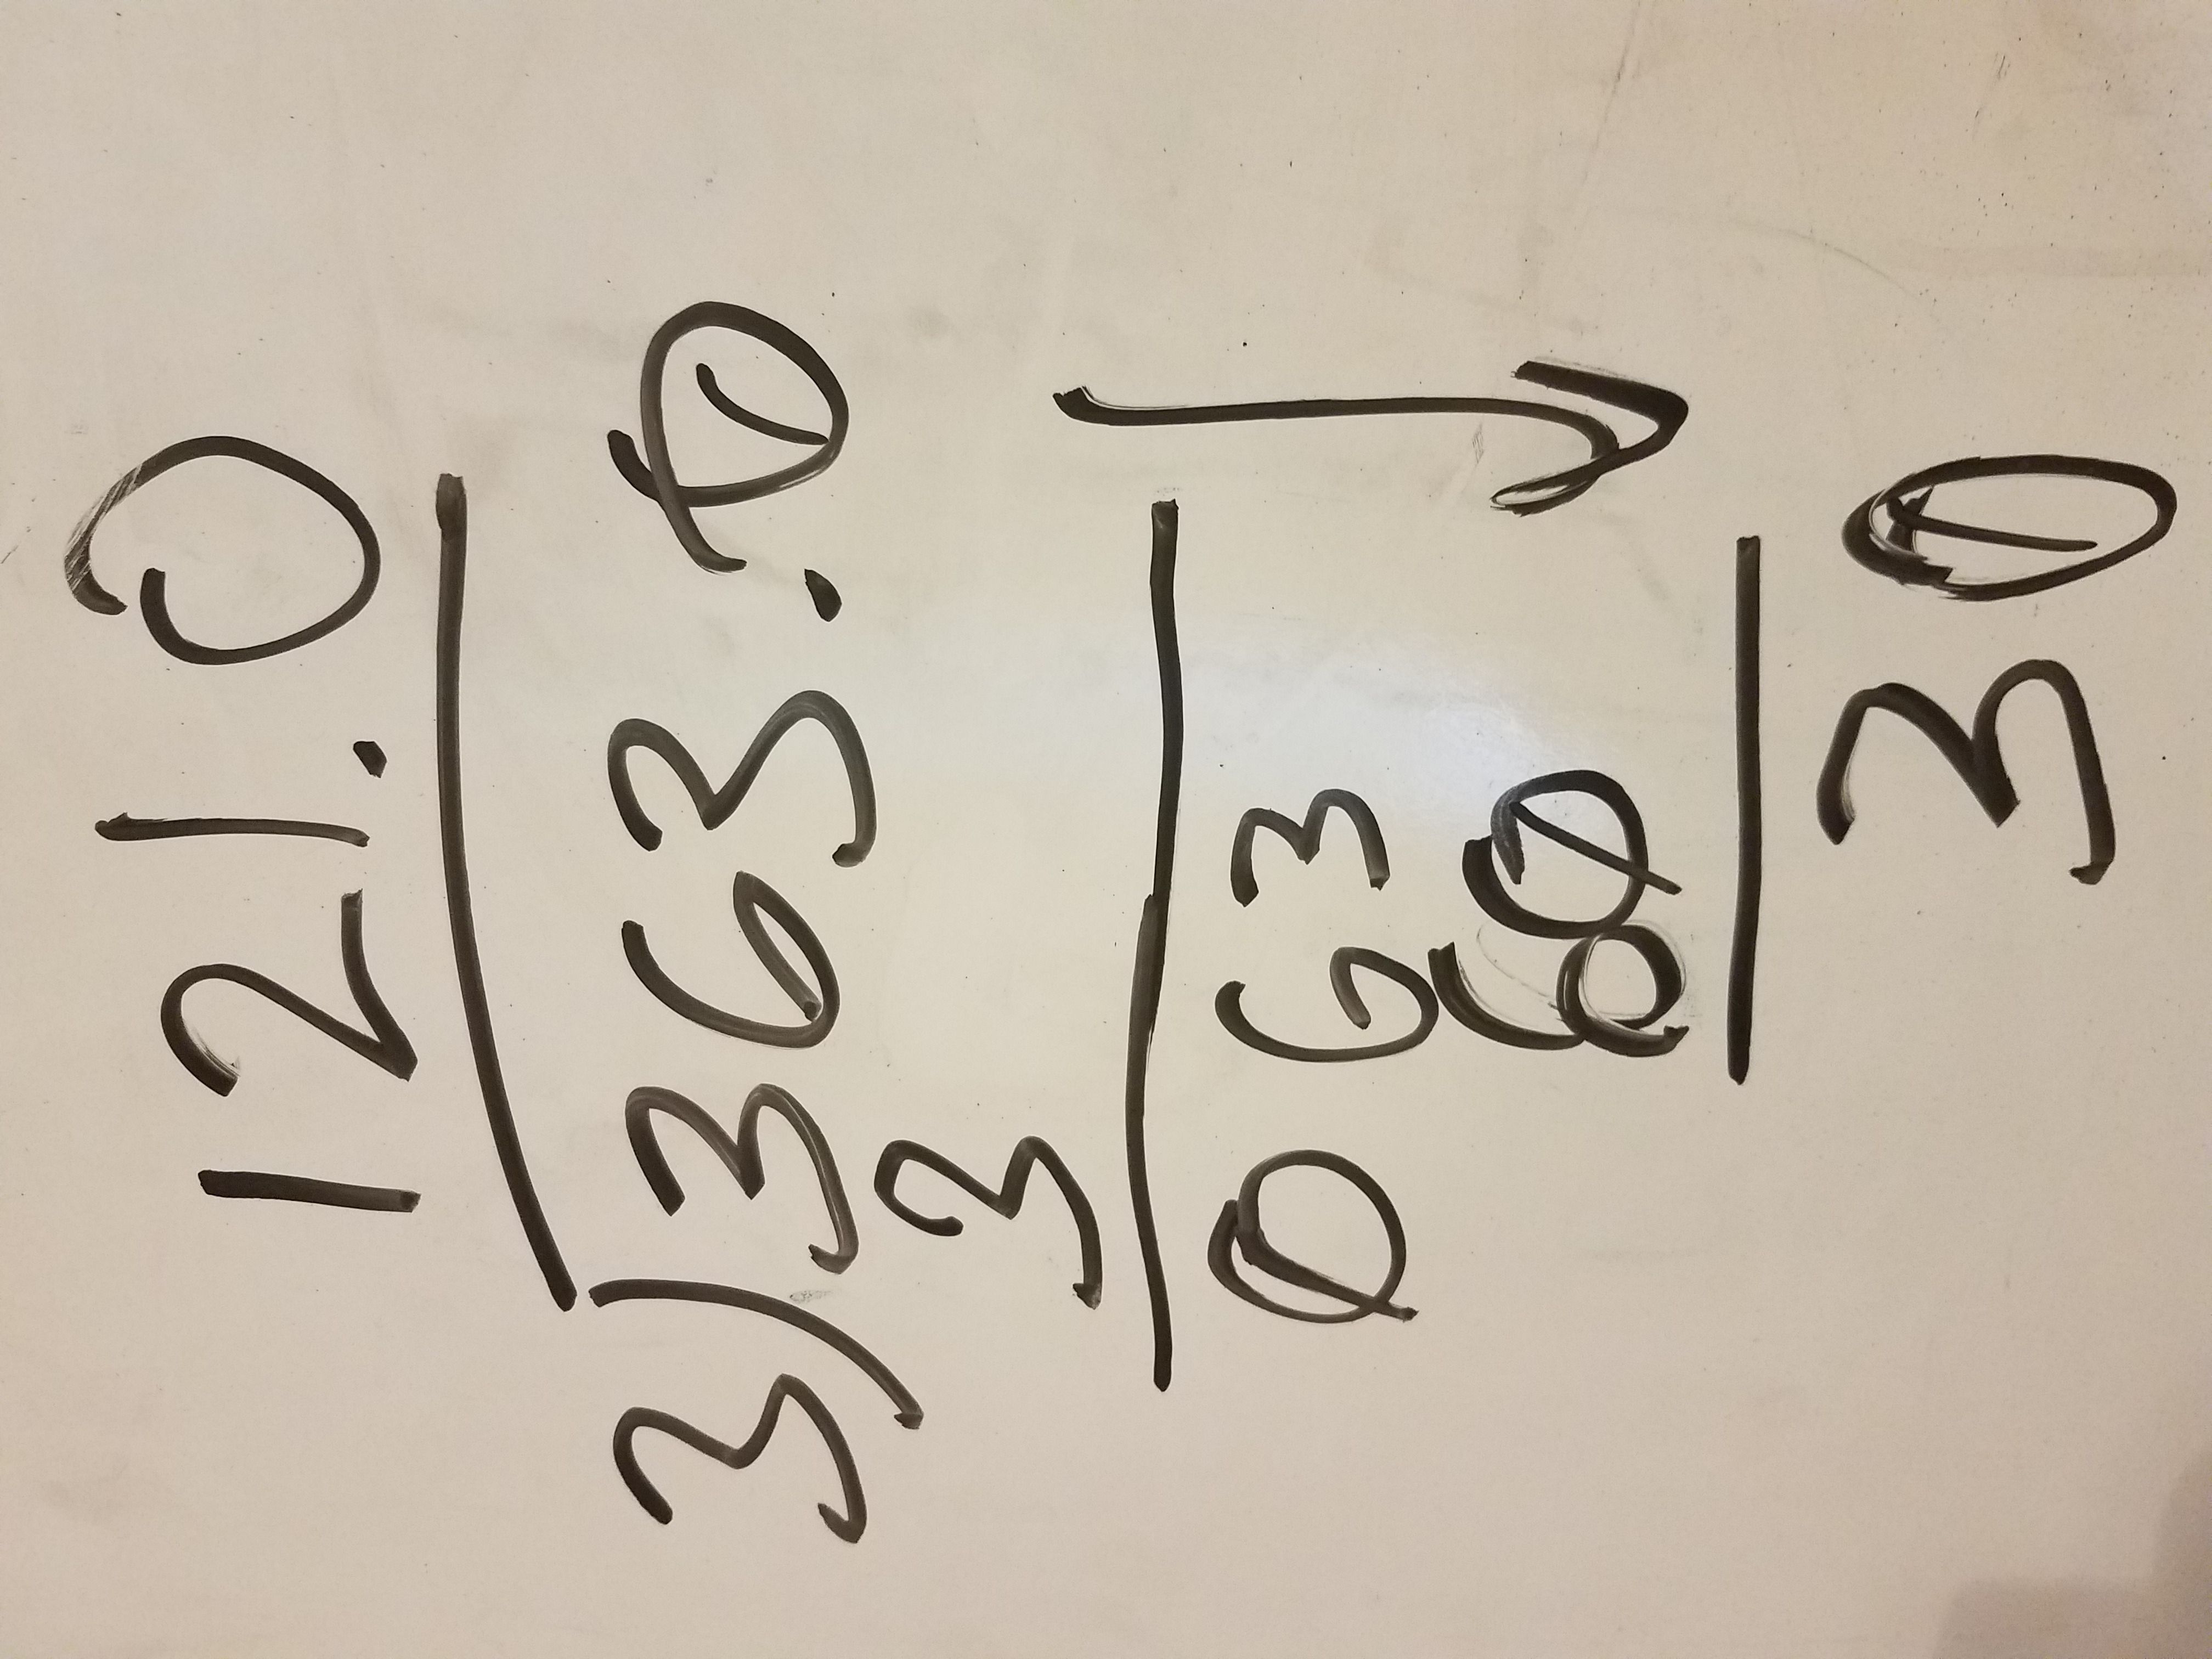 121.0
3)363.0
3
063
60
30